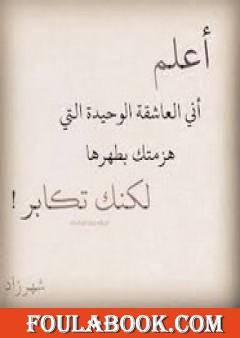 أعلم
أني العاشقة الوحيدة التي
هزمتك بطهرها
لكنك تكابر !
شهرزاد
FOULABOOK.COM